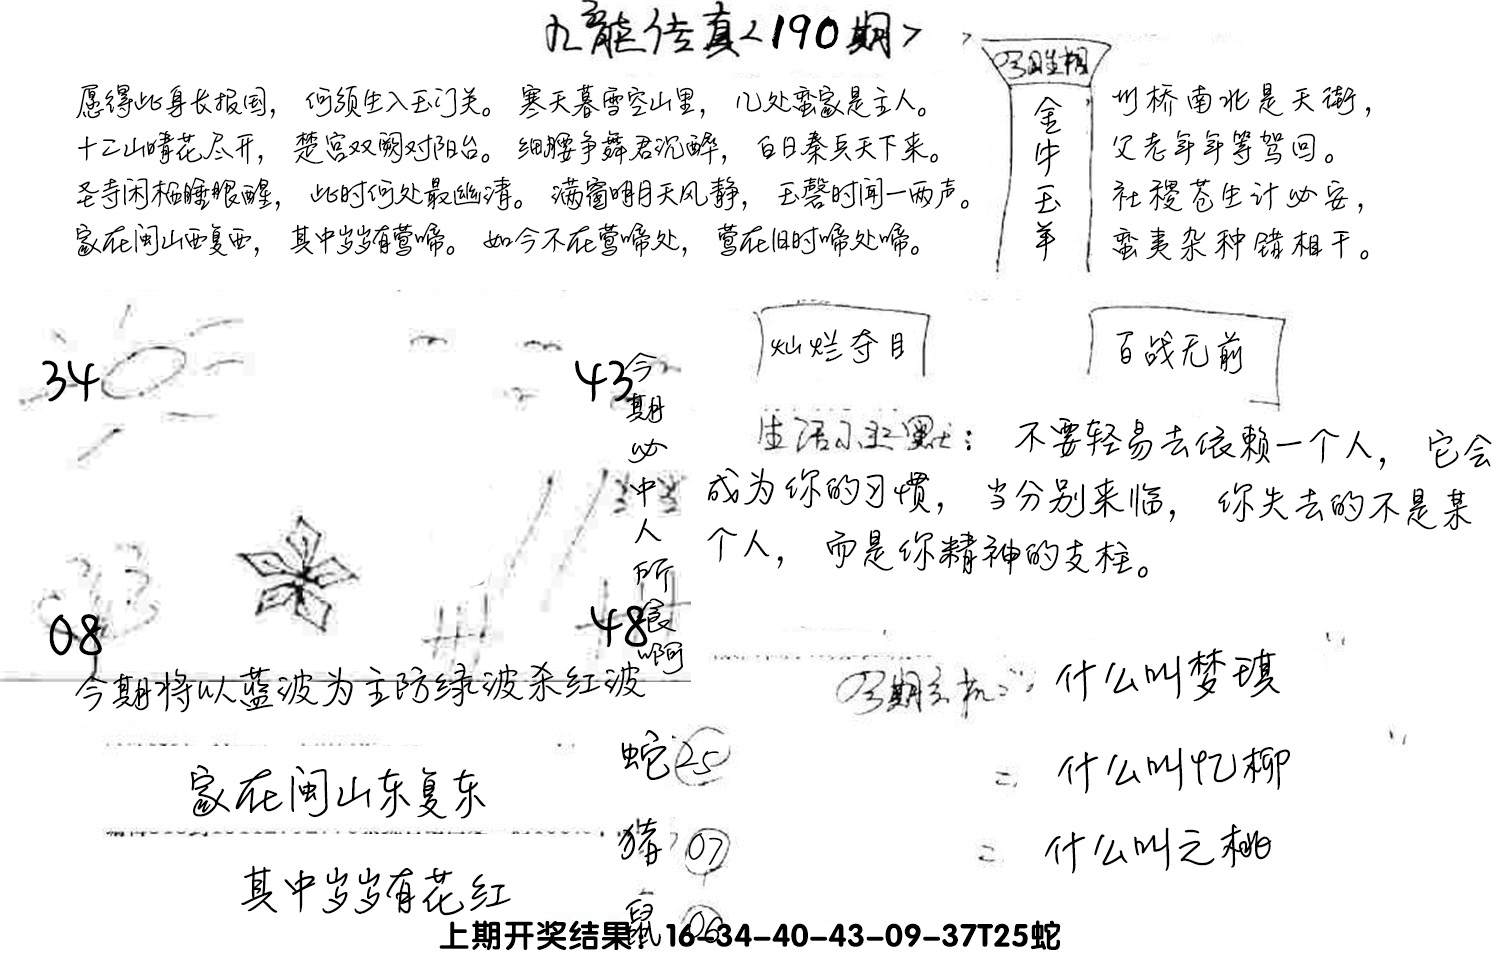 九龙传真<190期>
愿得此身长报国，何须生入玉门关。寒天暮雪空山里，几处蛮家是主人。
十二山晴花尽开，楚宫双阙对阳台。细腰争舞君沉醉，白日秦兵天下来。
圣寺闲栖睡眼醒，此时何处最幽清。满窗明月天风静，玉磬时闻一两声。
家在闽山西复西，其中岁岁有莺啼。如今不在莺啼处，莺在旧时啼处啼。
今期生相
金牛玉羊
州桥南北是天街，
父老年年等驾回。
社稷苍生计必安，
蛮夷杂种错相干。
34
43
08
48
今期必中人所食啊
今期将以蓝波为主防绿波杀红波
灿烂夺目
百战无前
生活小幽默：不要轻易去依赖一个人，它会
成为你的习惯，当分别来临，你失去的不是某
个人，而是你精神的支柱。
今期玄机：什么叫梦琪
什么叫忆柳
什么叫之桃
家在闽山东复东
其中岁岁有花红
蛇 25
猪 07
鼠 06
上期开奖结果：16-34-40-43-09-37T25蛇